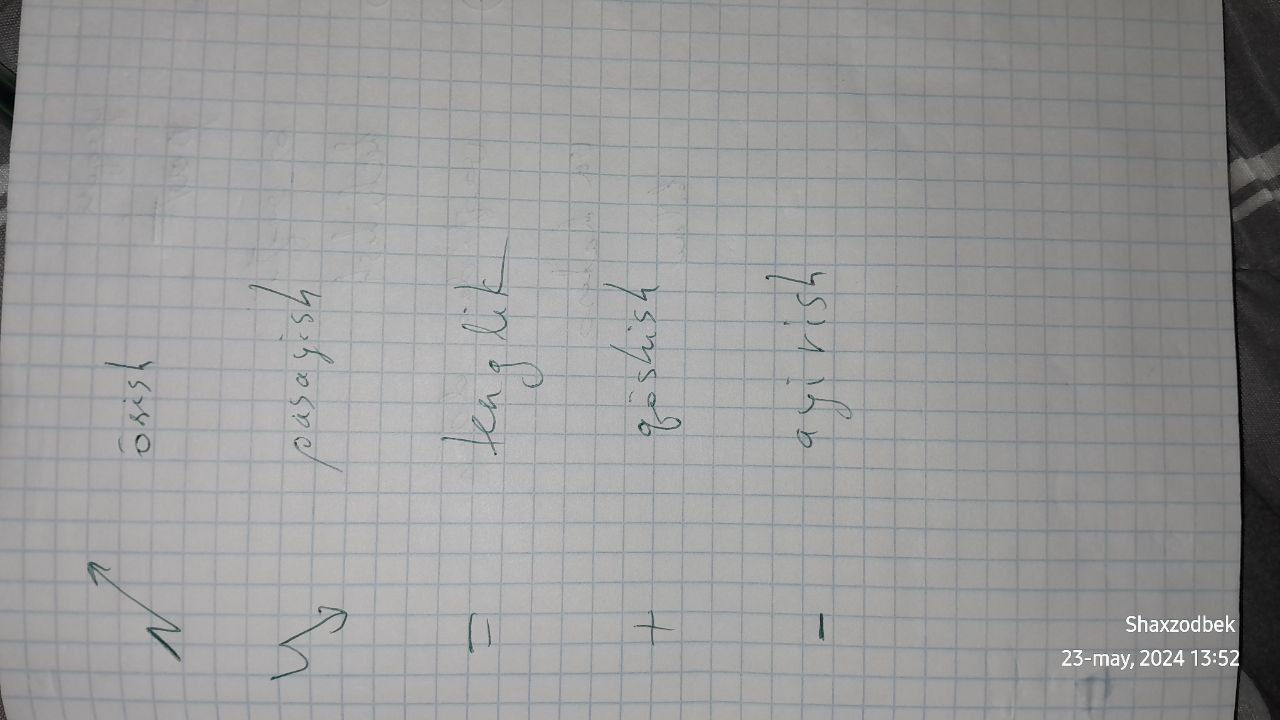 ōsish
pasayish
= tenglik
+ qōshish
- ayirish
Shaxzodbek
23-may, 2024 13:52